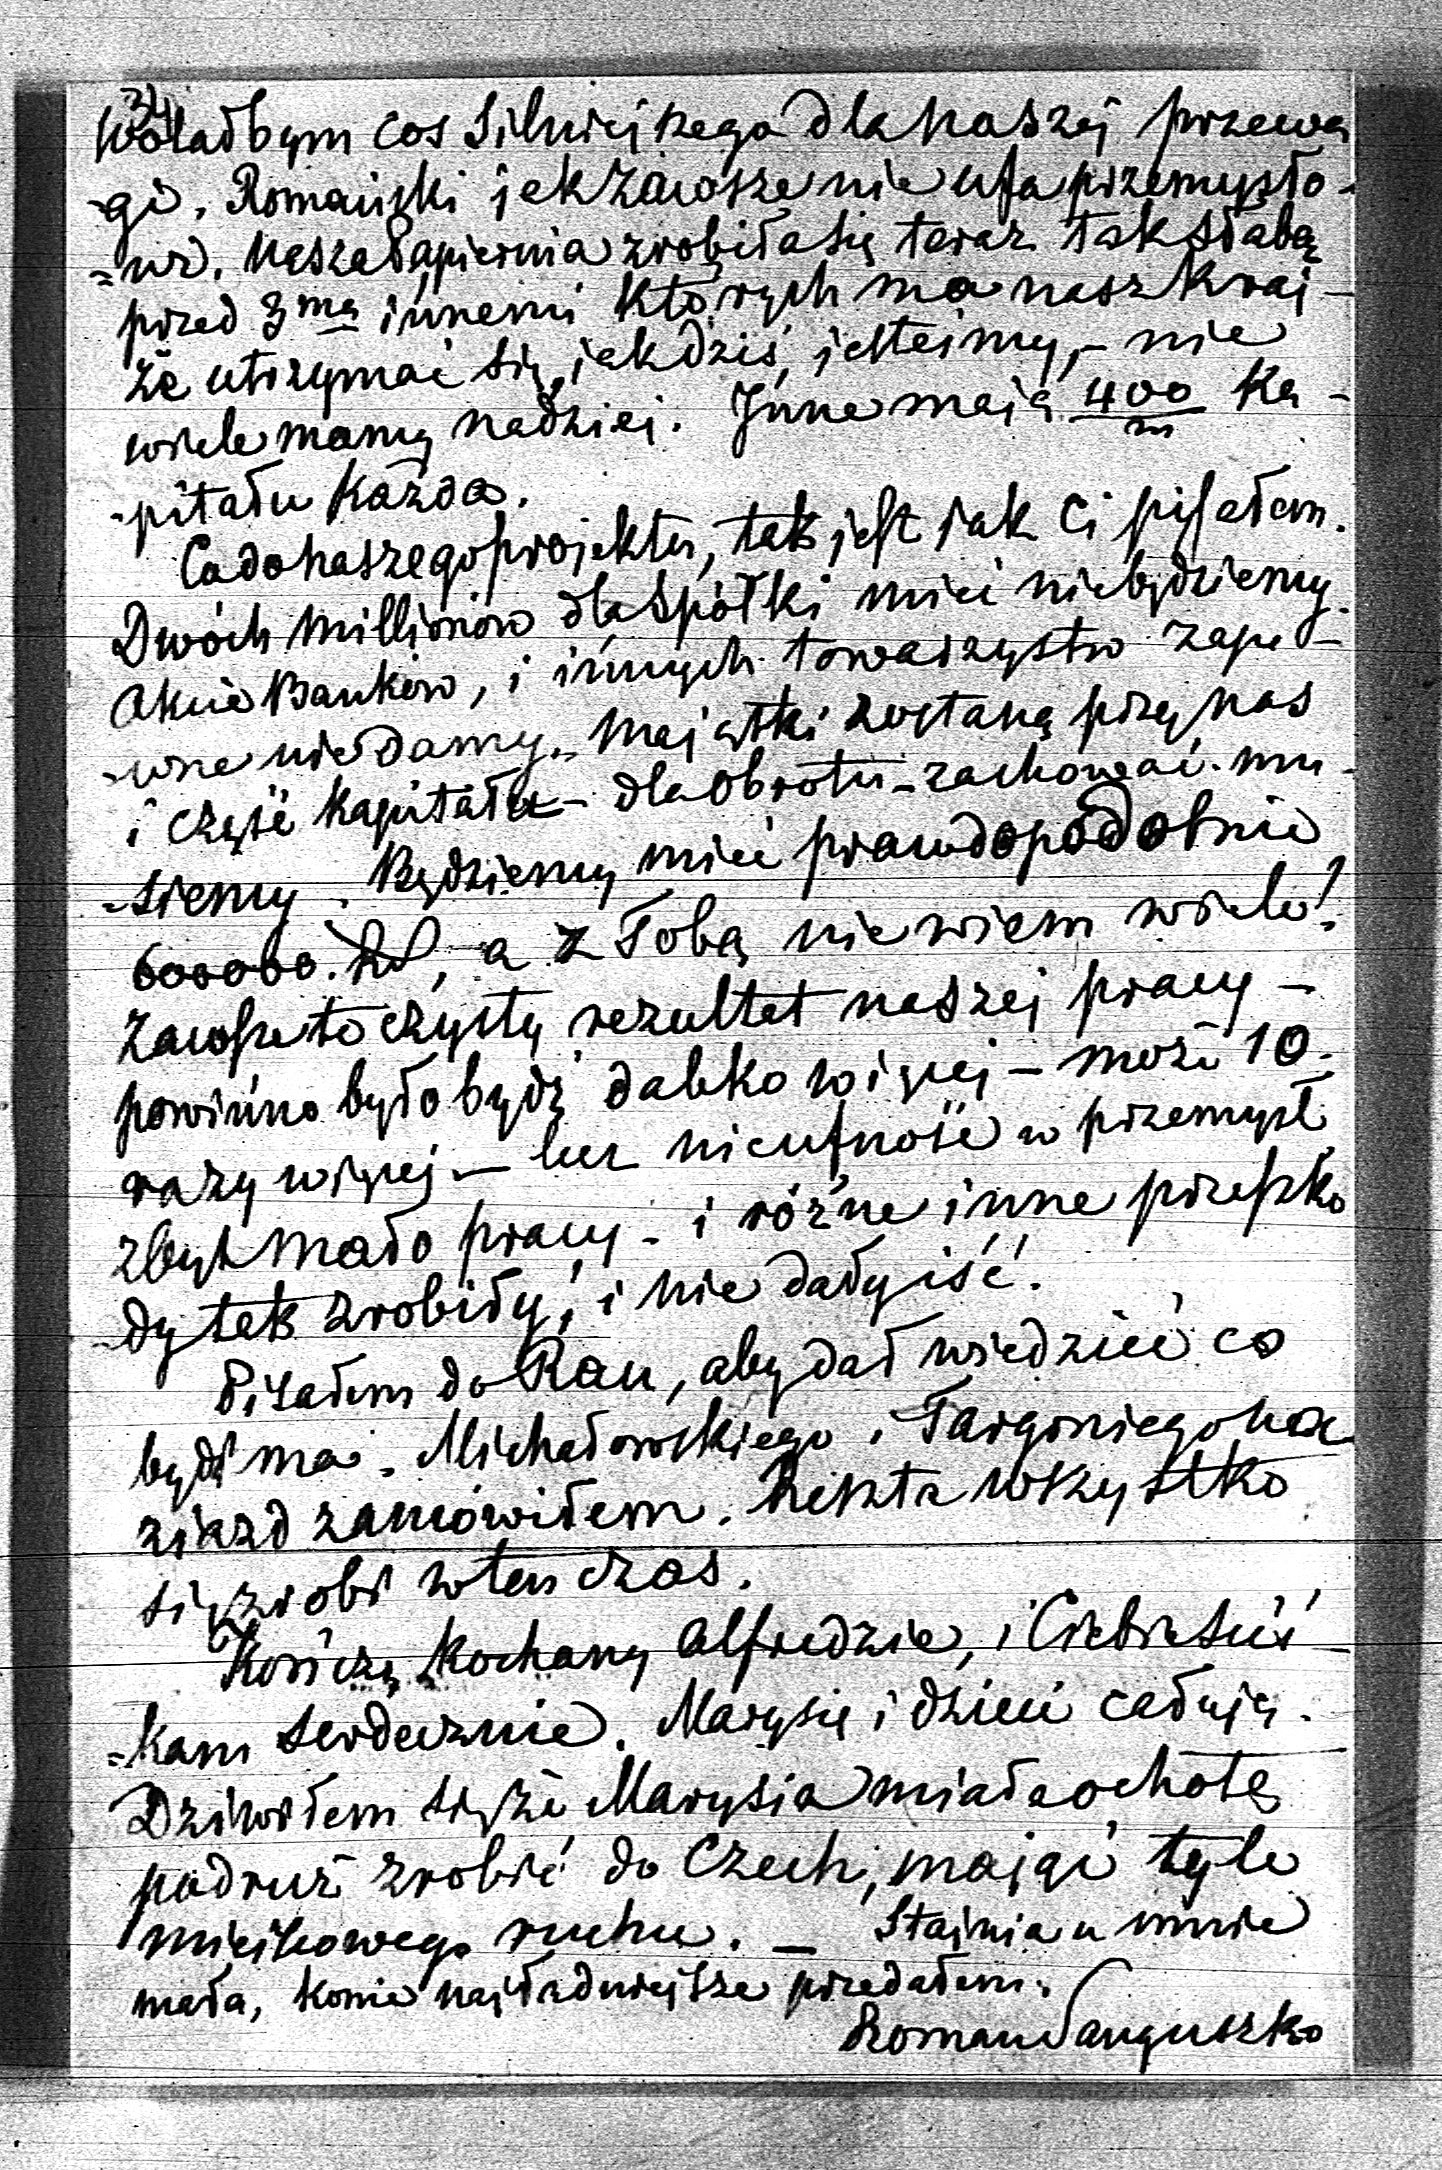 34
Wolałbym cos silniejszego dla naszej przewa
-gi. Romański jak zawsze nie ufa przemysło-
=wi. Nasza Papiernia zrobiła się teraz tak słabą
przed 3ma innemi których ma nasz kraj -
że utrzymać się, jak dziś jesteśmy, - nie
wiele mamy nadziej. Inne mają 400/m ka-
-pitału każda.
Co do naszego projektu, tak jest jak Ci pisałem.
Dwóch millionów dla Spółki mieć niebędziemy.
Akcie Banków, i innych towarzystw zape-
-wne nie damy. - Majątki zostaną przy nas
i część kapitału - dla obrotu - zachować mu-
-siemy. Będziemy mieć prawdopodobnie
600000. , a z Tobą nie wiem wiele!
Zawsze to czysty rezultat naszej pracy -
powinno było bydź daleko więcej - może 10.
razy więcej - lecz nieufność w przemysł
zbyt mało pracy - i różne inne przeszko
-dy tak zrobiły, i nie dały iść.
Pisałem do Rau, aby dał wiedzieć co
bydź ma. Michałowskiego i Targoniego na
zjazd zamówiłem. Reszta wszystko
się zrobi wtenczas.
Kończę kochany Alfredzie, i Ciebie ściś
=kam serdecznie. Marysię i dzieci całuję.
Dziwiłem się że Marysia miała ochotę
podruż zrobić do Czech, mając tyle
miejscowego ruchu. - Stajnia u mnie
mała, konie najładniejsze przedałem.
Roman Sanguszko